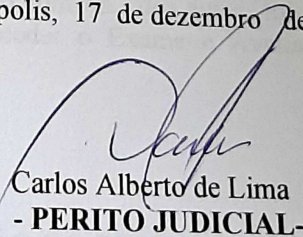 polis, 17 de dezembro de
Carlos Alberto de Lima
- PERITO JUDICIAL-